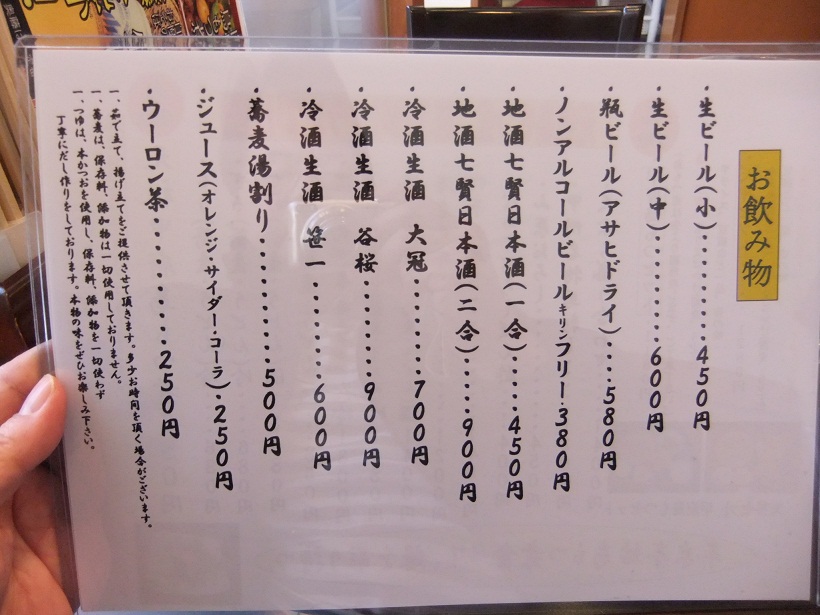 お飲み物
・生ビール(小)...........450円
・生ビール(中)...........600円
・瓶ビール(アサヒドライ)....580円
・ノンアルコールビールキリンフリー.380円
・地酒七賢日本酒(一合).....450円
・地酒七賢日本酒(二合).....900円
・冷酒生酒 大冠.........700円
・冷酒生酒 谷桜.........900円
・冷酒生酒 笹一.........600円
・蕎麦湯割り...........500円
・ジュース(オレンジ・サイダー・コーラ).250円
・ウーロン茶...........250円
一、茹で立て、揚げ立てをご提供させて頂きます。多少お時間を頂く場合がございます。
一、蕎麦は、保存料、添加物は一切使用しておりません。
一、つゆは、本かつおを使用し、保存料、添加物を一切使わず
丁寧にだし作りをしております。本物の味をぜひお楽しみ下さい。